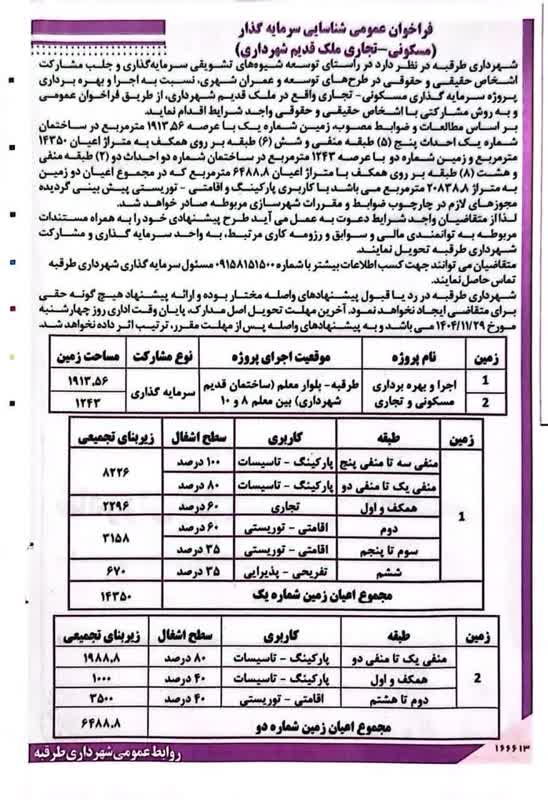 فراخوان عمومی شناسایی سرمایه گذار
(مسکونی-تجاری ملک قدیم شهرداری)
شهرداری طرقبه در نظر دارد در راستای توسعه شیوه‌های تشویقی سرمایه‌گذاری و جلب مشارکت
اشخاص حقیقی و حقوقی در طرح‌های توسعه و عمران شهری، نسبت به اجرا و بهره برداری
پروژه سرمایه گذاری مسکونی- تجاری واقع در ملک قدیم شهرداری، از طریق فراخوان عمومی
و به روش مشارکتی با اشخاص حقیقی و حقوقی واجد شرایط اقدام نماید.
بر اساس مطالعات و ضوابط مصوب، زمین شماره یک با عرصه ۱۹۱۳.۵۶ مترمربع در ساختمان
شماره یک احداث پنج (۵) طبقه منفی و شش (۶) طبقه بر روی همکف به متراژ اعیان ۱۴۳۵۰
مترمربع و زمین شماره دو با عرصه ۱۲۴۳ مترمربع در ساختمان شماره دو احداث دو (۲) طبقه منفی
و هشت (۸) طبقه بر روی همکف با متراژ اعیان ۶۴۸۸.۸ مترمربع که در مجموع اعیان دو زمین
به متراژ ۲۰۸۳۸.۸ مترمربع می باشد، با کاربری پارکینگ و اقامتی - توریستی پیش بینی گردیده
مجوزهای لازم در چارچوب ضوابط و مقررات شهرسازی مربوطه صادر خواهد شد.
لذا از متقاضیان واجد شرایط دعوت به عمل می آید طرح پیشنهادی خود را به همراه مستندات
مربوطه به توانمندی مالی و سوابق و رزومه کاری مرتبط، به واحد سرمایه گذاری و مشارکت
شهرداری طرقبه تحویل نمایند.
متقاضیان می توانند جهت کسب اطلاعات بیشتر با شماره ۰۹۱۵۸۱۵۱۵۰۰ مسئول سرمایه گذاری شهرداری طرقبه
تماس حاصل نمایند.
شهرداری طرقبه در رد یا قبول پیشنهادهای واصله مختار بوده و ارائه پیشنهاد هیچ گونه حقی
برای متقاضی ایجاد نخواهد نمود. آخرین مهلت تحویل اصل مدارک، پایان وقت اداری روز چهارشنبه
مورخ ۱۴۰۴/۱۱/۲۹ می باشد و به پیشنهادهای واصله پس از مهلت مقرر، ترتیب اثر داده نخواهد شد.
زمین نام پروژه موقعیت اجرای پروژه نوع مشارکت مساحت زمین
1 اجرا و بهره برداری طرقبه- بلوار معلم (ساختمان قدیم سرمایه گذاری ۱۹۱۳.۵۶
2 مسکونی و تجاری شهرداری) بین معلم ۸ و ۱۰ ۱۲۴۳
زمین طبقه کاربری سطح اشغال زیربنای تجمیعی
1 منفی سه تا منفی پنج پارکینگ - تاسیسات ۱۰۰ درصد ۸۲۲۶
منفی یک تا منفی دو پارکینگ - تاسیسات ۸۰ درصد
همکف و اول تجاری ۶۰ درصد ۲۲۹۶
دوم اقامتی - توریستی ۶۰ درصد ۳۱۵۸
سوم تا پنجم اقامتی - توریستی ۳۵ درصد
ششم تفریحی - پذیرایی ۳۵ درصد ۶۷۰
مجموع اعیان زمین شماره یک ۱۴۳۵۰
زمین طبقه کاربری سطح اشغال زیربنای تجمیعی
2 منفی یک تا منفی دو پارکینگ - تاسیسات ۸۰ درصد ۱۹۸۸.۸
همکف و اول پارکینگ - تاسیسات ۴۰ درصد ۱۰۰۰
دوم تا هشتم اقامتی - توریستی ۴۰ درصد ۳۵۰۰
مجموع اعیان زمین شماره دو ۶۴۸۸.۸
۱۶۶۶۱۳
روابط عمومی شهرداری طرقبه